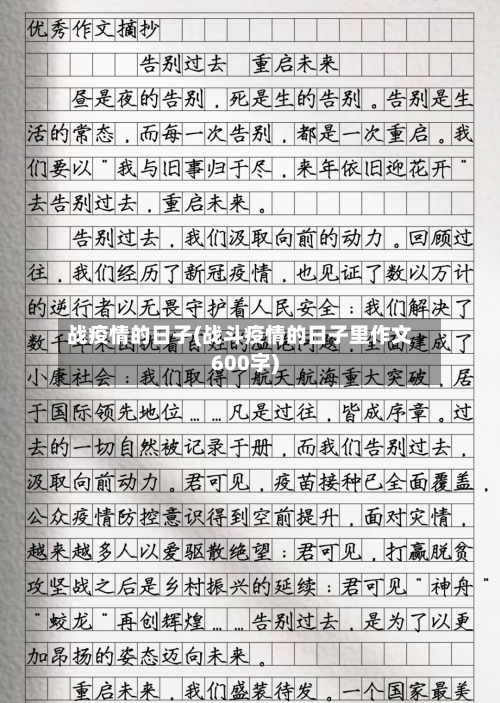 优秀作文摘抄
告别过去 重启未来
昼是夜的告别，死是生的告别。告别是生
活的常态，而每一次告别，都是一次重启。我
们要以“我与旧事归于尽，来年依旧迎花开”
去告别过去，重启未来。
告别过去，我们汲取向前的动力。回顾过
往，我们经历了新冠疫情，也见证了数以万计
的逆行者以无畏守护着人民安全：我们解决了
战疫情的日子(战斗疫情的日子里作文
600字)
数千年来困扰着 建成了
小康社会：我们取得了航天航海重大突破，居
于国际领先地位……凡是过往，皆成序章。过
去的一切自然被记录于册，而我们告别过去，
汲取向前动力。君可见，疫苗接种已全面覆盖，
公众疫情防控意识得到空前提升，面对灾情，
越来越多人以爱驱散绝望：君可见，打赢脱贫
攻坚战之后是乡村振兴的延续：君可见“神舟”
“蛟龙”再创辉煌……告别过去，是为了以更
加昂扬的姿态迈向未来。
重启未来，我们盛装待发。一个国家最美